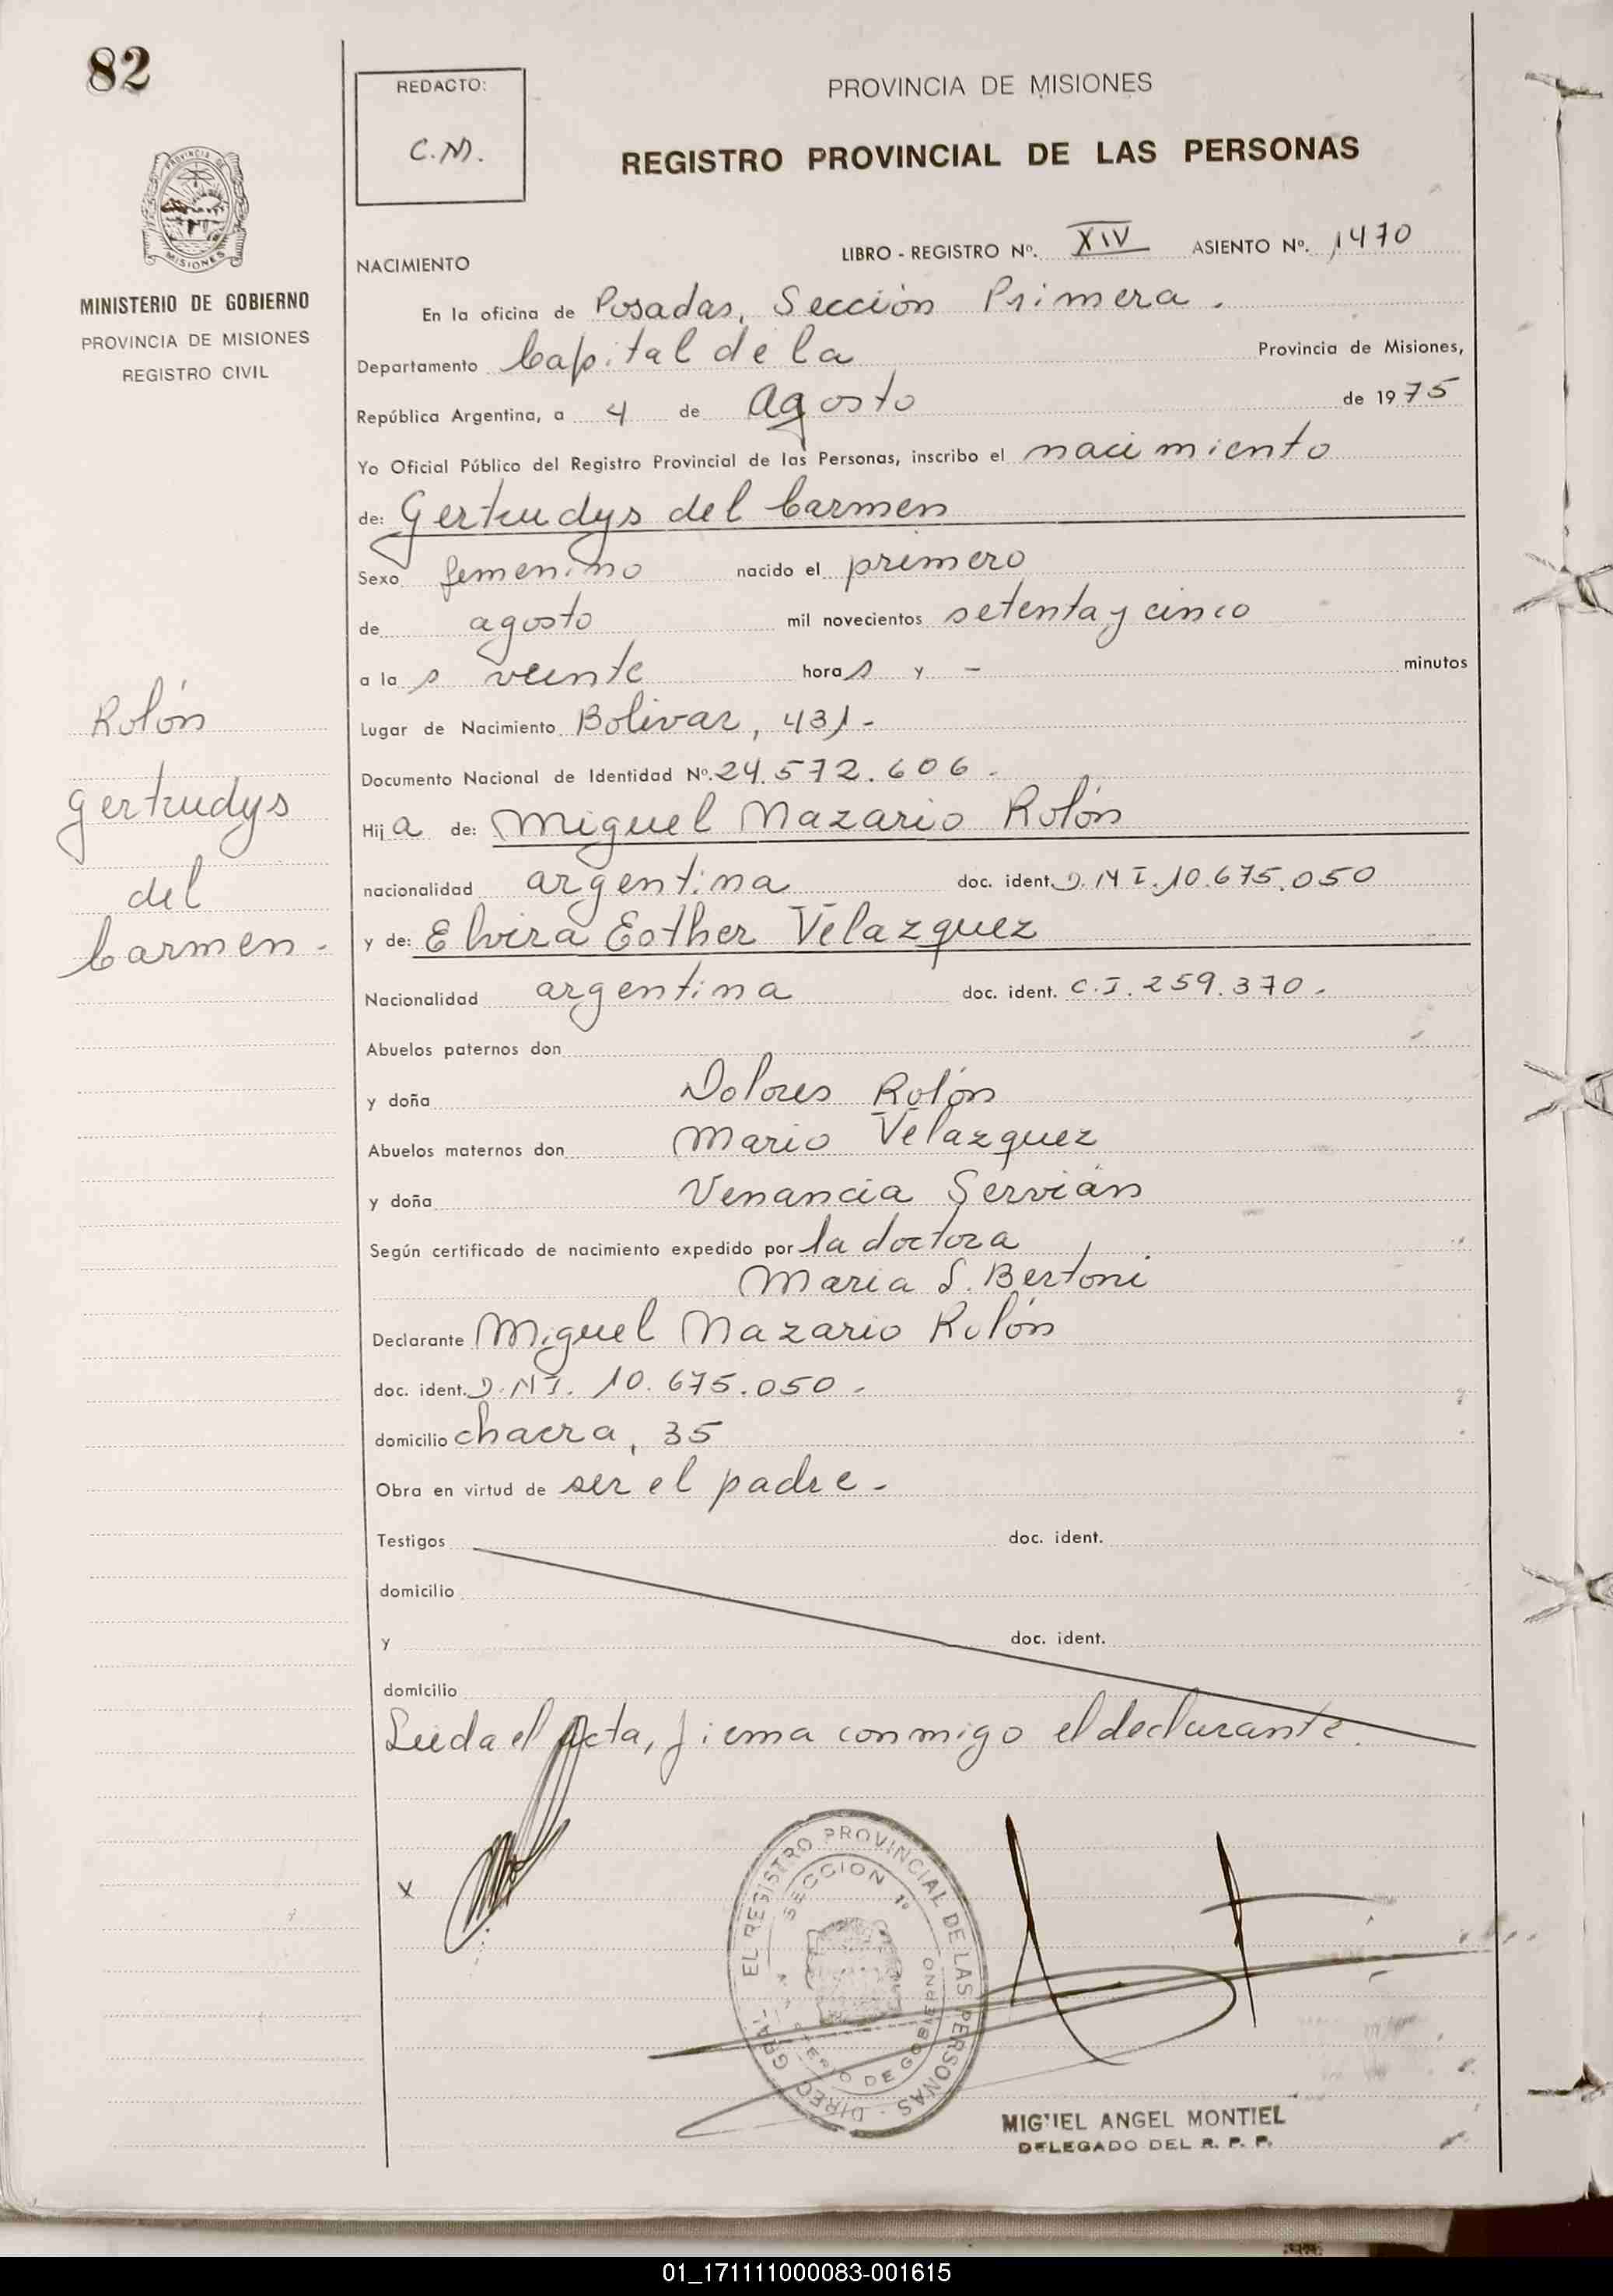 82
REDACTO:
C.M.
PROVINCIA DE MISIONES
REGISTRO PROVINCIAL DE LAS PERSONAS
MISIONES
MINISTERIO DE GOBIERNO
PROVINCIA DE MISIONES
REGISTRO CIVIL
NACIMIENTO LIBRO - REGISTRO Nº. XIV ASIENTO Nº. 1470
En la oficina de Posadas, Sección Primera.
Departamento Capital de la Provincia de Misiones,
República Argentina, a 4 de Agosto de 1975
Yo Oficial Público del Registro Provincial de las Personas, inscribo el nacimiento
de: Gertrudys del Carmen
Sexo femenino nacido el primero
de agosto mil novecientos setenta y cinco
a las veinte horas y - minutos
Lugar de Nacimiento Bolivar, 431-
Documento Nacional de Identidad Nº. 24.572.606.
Hija de: Miguel Nazario Rolón
nacionalidad argentina doc. ident. D.N.I. 10.675.050
y de: Elvira Esther Velazquez
Nacionalidad argentina doc. ident. C.I. 259.370.
Abuelos paternos don
y doña Dolores Rolón
Abuelos maternos don Mario Velazquez
y doña Venancia Servián
Según certificado de nacimiento expedido por la doctora
Maria S. Bertoni
Declarante Miguel Nazario Rolón
doc. ident. D.N.I. 10.675.050.
domicilio chacra, 35
Obra en virtud de ser el padre.
Testigos doc. ident.
domicilio
y doc. ident.
domicilio
Leida el Acta, firma conmigo el declarante.
Rolón
Gertrudys
del
Carmen.
x
DIREC. GRAL. EL REGISTRO PROVINCIAL DE LAS PERSONAS
SECCION 1º
DE GOBIERNO
MIGUEL ANGEL MONTIEL
DELEGADO DEL R. P. P.
01_171111000083-001615